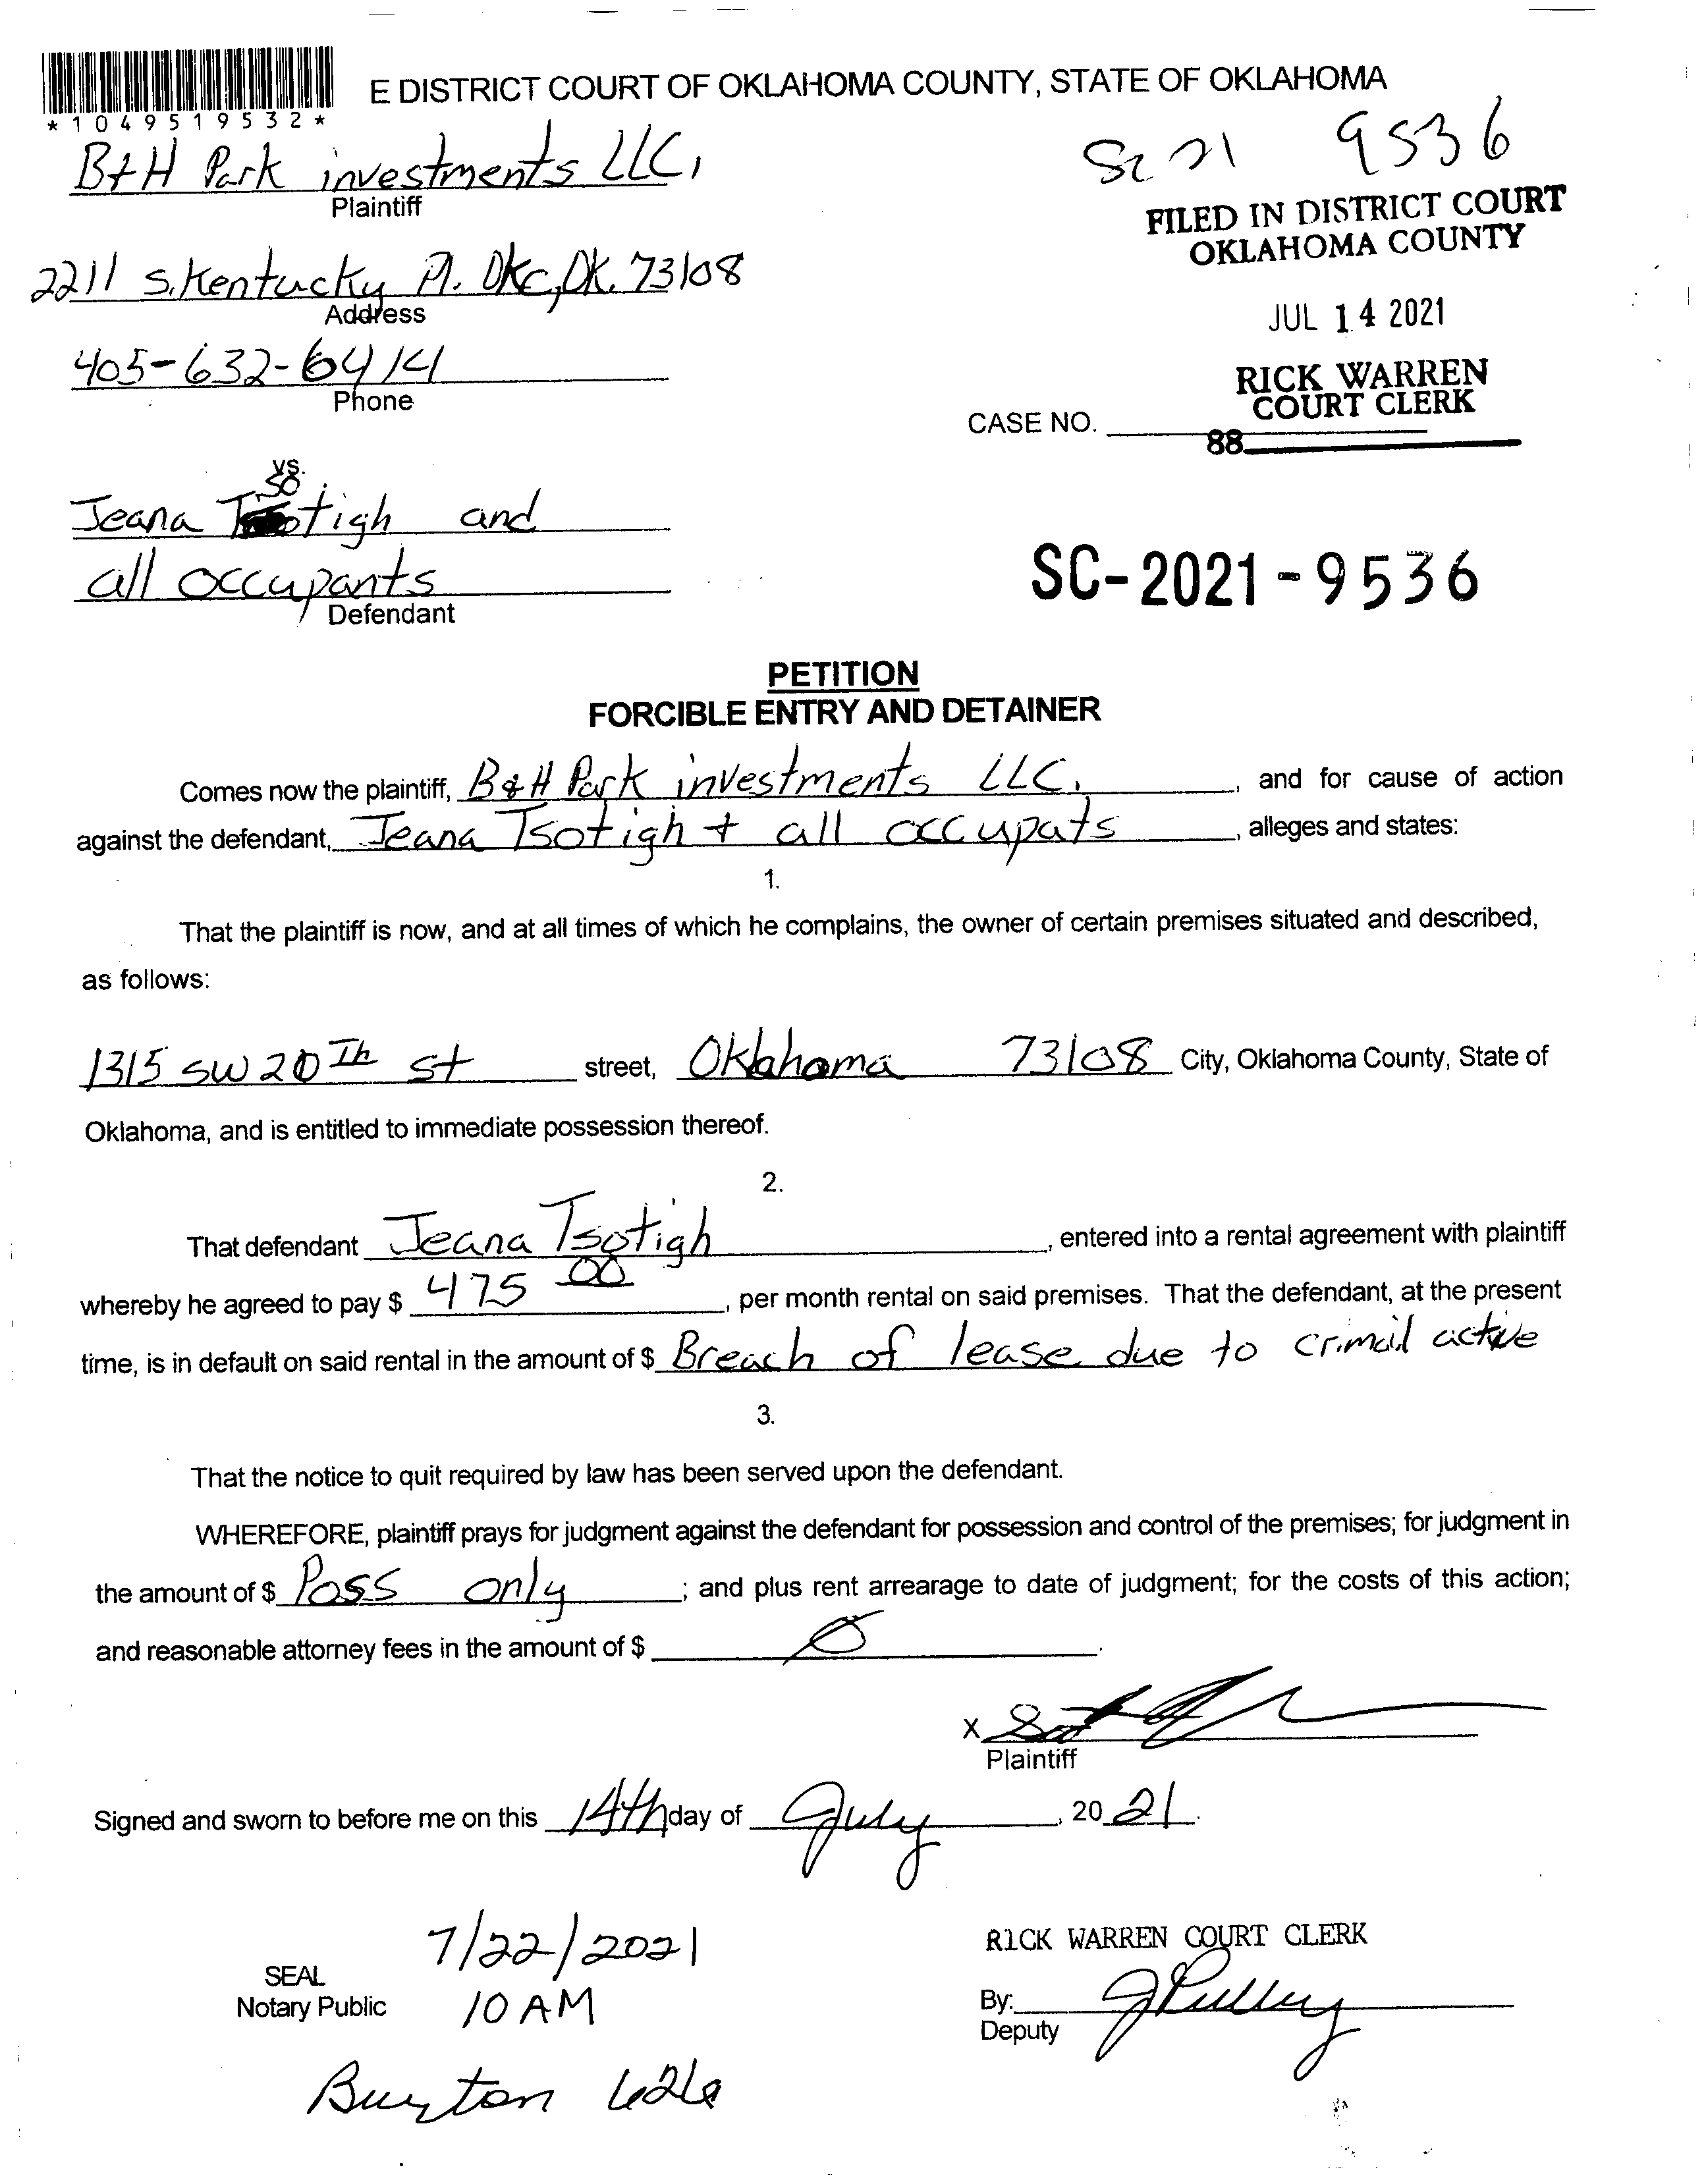 E DISTRICT COURT OF OKLAHOMA COUNTY, STATE OF OKLAHOMA
*1049519532*
B&H Park investments LLC,
Plaintiff
SC 21 9536
FILED IN DISTRICT COURT
OKLAHOMA COUNTY
2211 S. Kentucky Pl. OKC, OK. 73108
Address
JUL 14 2021
405-632-6414
Phone
RICK WARREN
COURT CLERK
CASE NO.
88
vs.
so
Jeana Tsotigh and
all occupants
Defendant
SC-2021-9536
PETITION
FORCIBLE ENTRY AND DETAINER
Comes now the plaintiff, B&H Park investments LLC, , and for cause of action
against the defendant, Jeana Tsotigh + all occupats , alleges and states:
1.
That the plaintiff is now, and at all times of which he complains, the owner of certain premises situated and described,
as follows:
1315 SW 20Th St street, Oklahoma 73108 City, Oklahoma County, State of
Oklahoma, and is entitled to immediate possession thereof.
2.
That defendant Jeana Tsotigh , entered into a rental agreement with plaintiff
whereby he agreed to pay $ 475 00 , per month rental on said premises. That the defendant, at the present
time, is in default on said rental in the amount of $ Breach of lease due to crimail active
3.
That the notice to quit required by law has been served upon the defendant.
WHEREFORE, plaintiff prays for judgment against the defendant for possession and control of the premises; for judgment in
the amount of $ Poss only ; and plus rent arrearage to date of judgment; for the costs of this action;
and reasonable attorney fees in the amount of $ 0 .
X
Plaintiff
Signed and sworn to before me on this 14th day of July , 20 21.
7/22/2021
10 AM
SEAL
Notary Public
RICK WARREN COURT CLERK
By: JPulley
Deputy
626